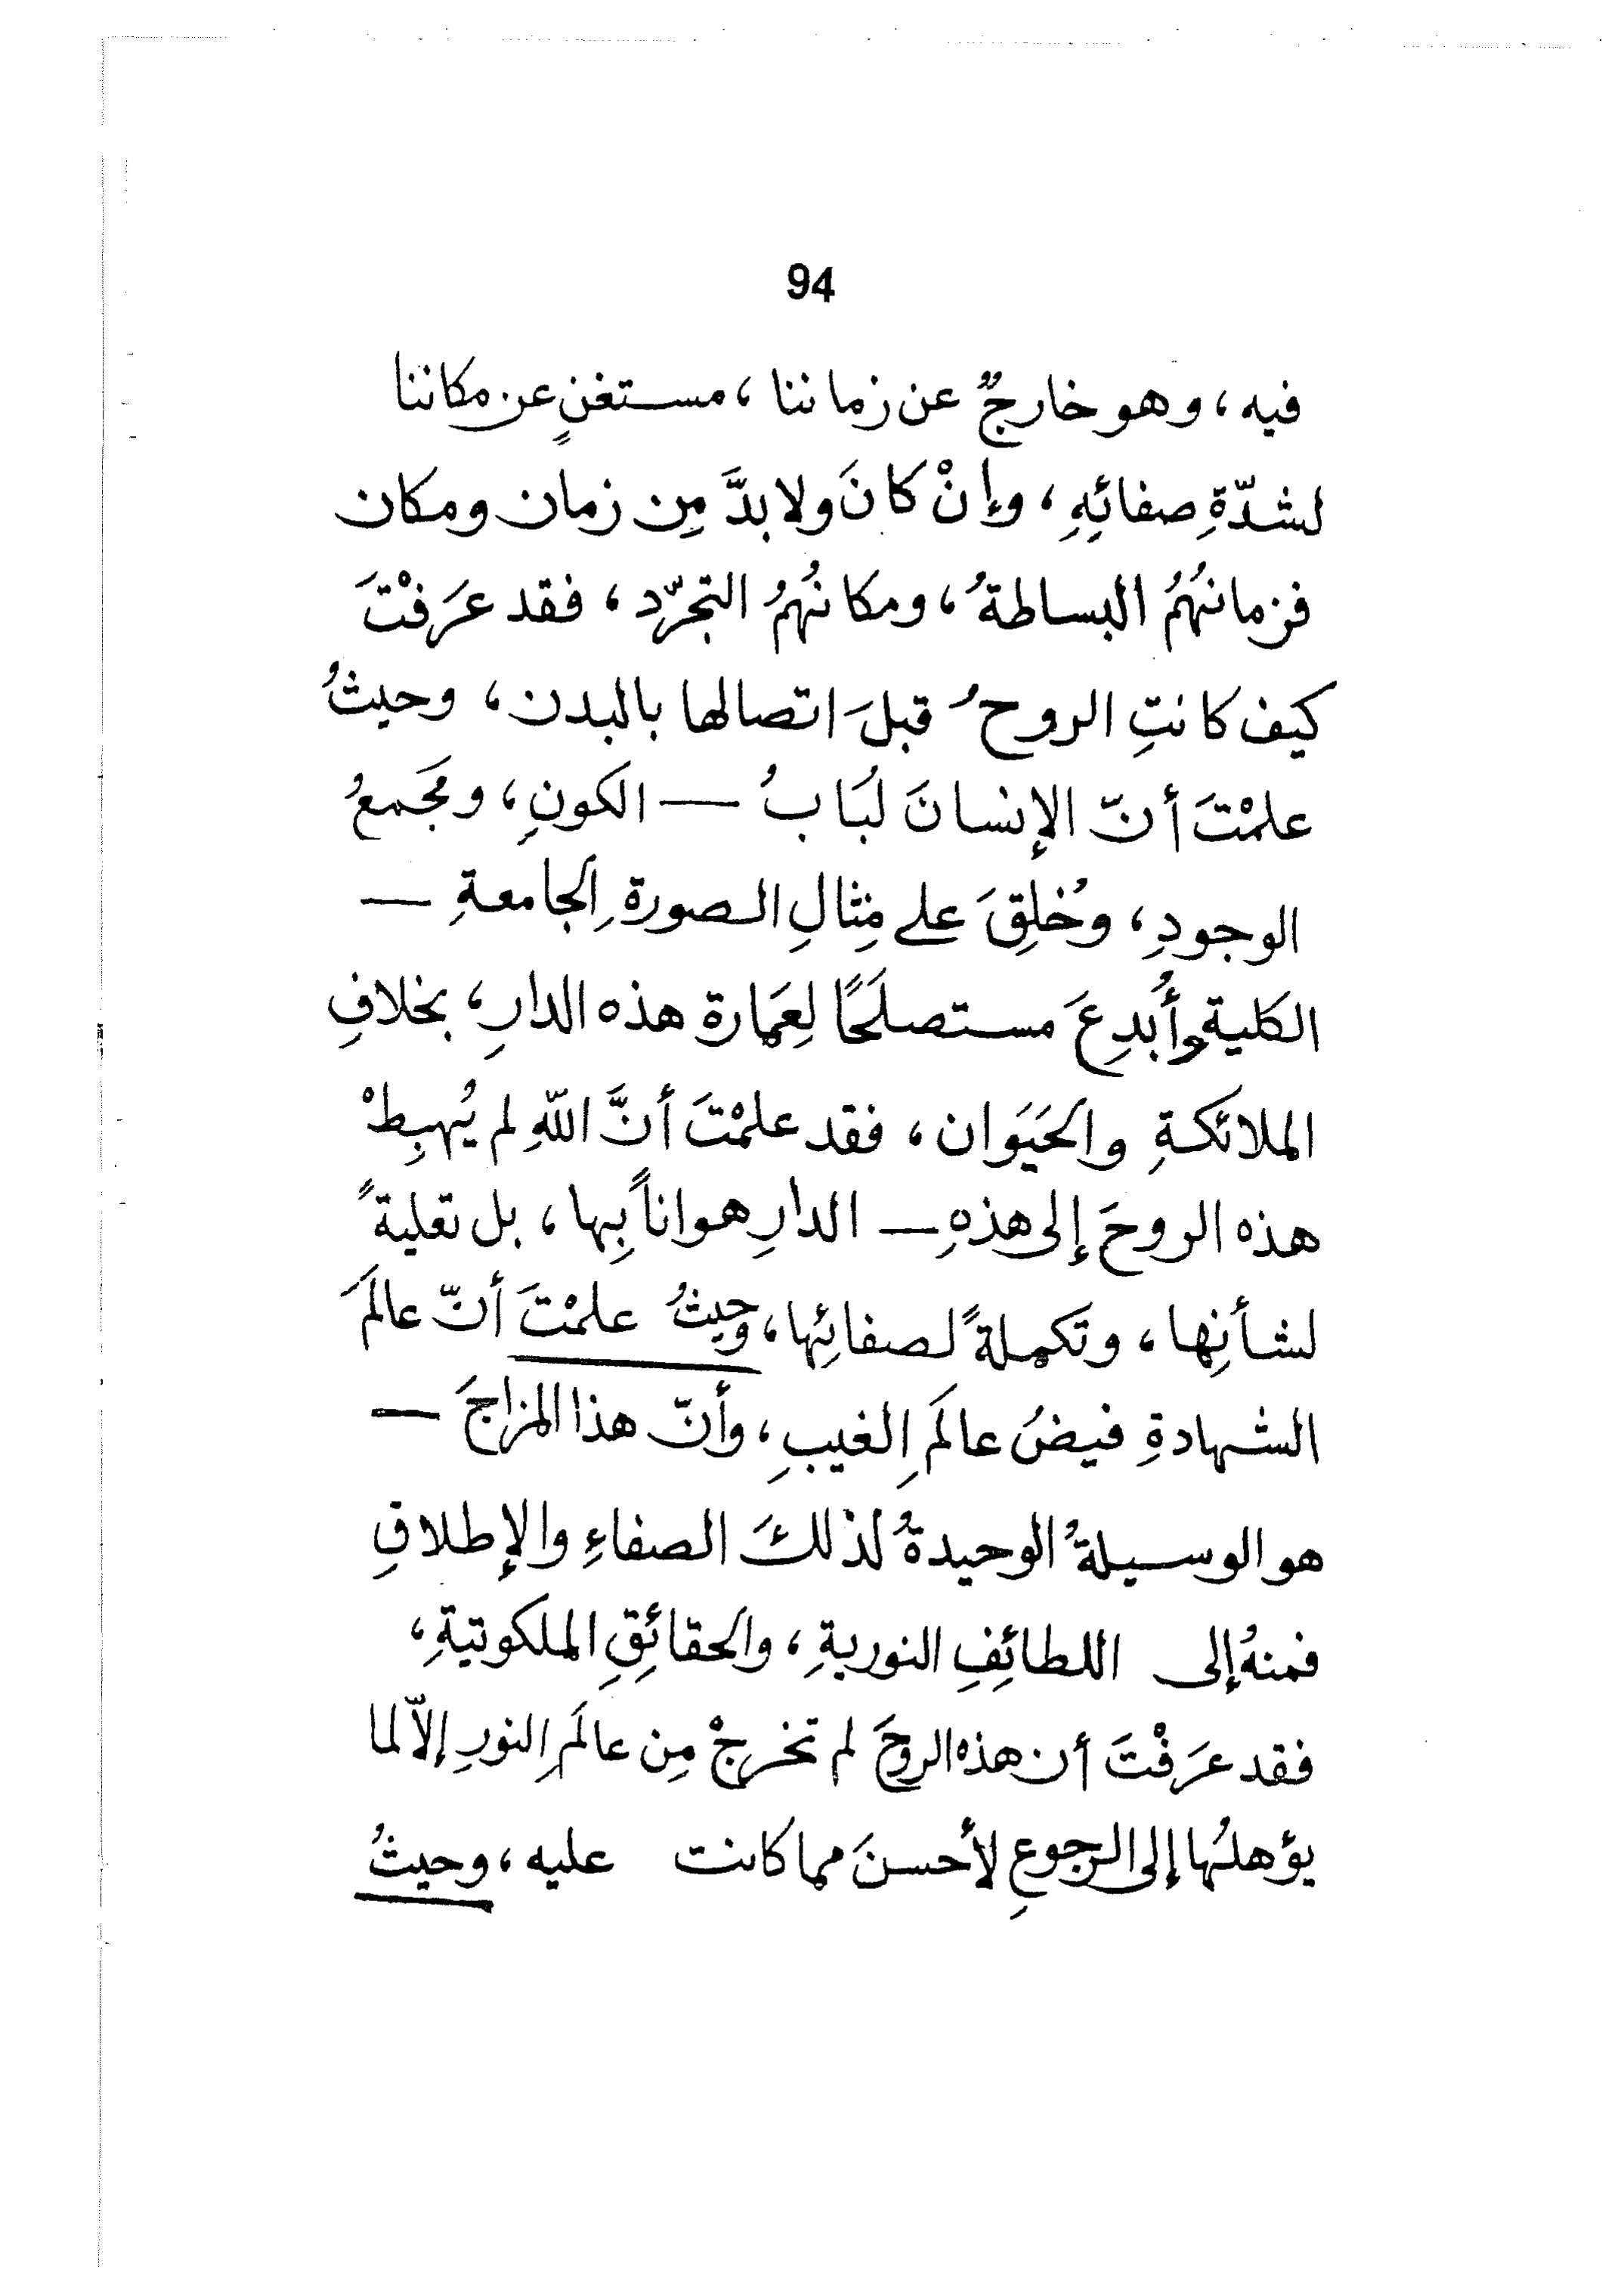 94
فيه، وهو خارجٌ عن زماننا، مستغنٍ عن مكاننا
لشدّةِ صفائِهِ، وإنْ كانَ ولا بدَّ مِن زمان ومكان
فزمانُهُمُ البساطةُ، ومكانُهُمُ التجرّد، فقد عرَفْتَ
كيف كانتِ الروحُ قبلَ اتصالها بالبدن، وحيثُ
علمْتَ أنّ الإنسانَ لُبَابُ — الكونِ، ومَجمعُ
الوجودِ، وخُلِقَ على مِثالِ الصورةِ الجامعةِ —
الكلية وأُبدِعَ مستصلَحًا لِعَمارة هذه الدارِ، بخلافِ
الملائكةِ والحَيَوان، فقد علمْتَ أنَّ اللّهِ لم يُهبِطْ
هذه الروحَ إلى هذهِ — الدارِ هواناً بِها، بل تعليةً
لشأنِها، وتكملةً لصفائِها، وحيثُ علمْتَ أنّ عالَمَ
الشهادةِ فيضُ عالَمِ الغيبِ، وأنّ هذا المزاجَ —
هو الوسيلةُ الوحيدةُ لذلكَ الصفاءِ والإطلاقِ
فمنهُ إلى اللطائِفِ النوريةِ، والحقائِقِ الملكوتيةِ،
فقد عرَفْتَ أن هذه الروحَ لم تخرجْ مِن عالَمِ النورِ إلاّ لما
يؤهلُها إلى الرجوعِ لأحسنَ مما كانت عليه، وحيثُ